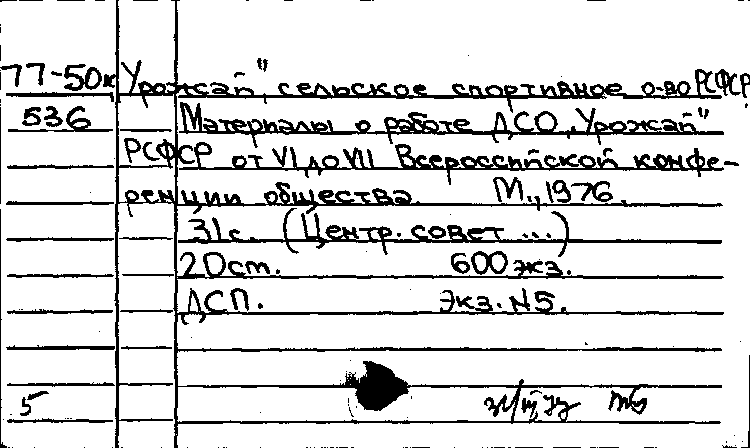 77-50к Урожай", сельское спортивное о-во РСФСР.
536 Материалы о работе ДСО „Урожай"
РСФСР от VI до VII Всероссийской конфе-
ренции общества. М., 1976.
31с. (Центр. совет ...)
20ст. 600 экз.
ДСП. Экз. №5.
5